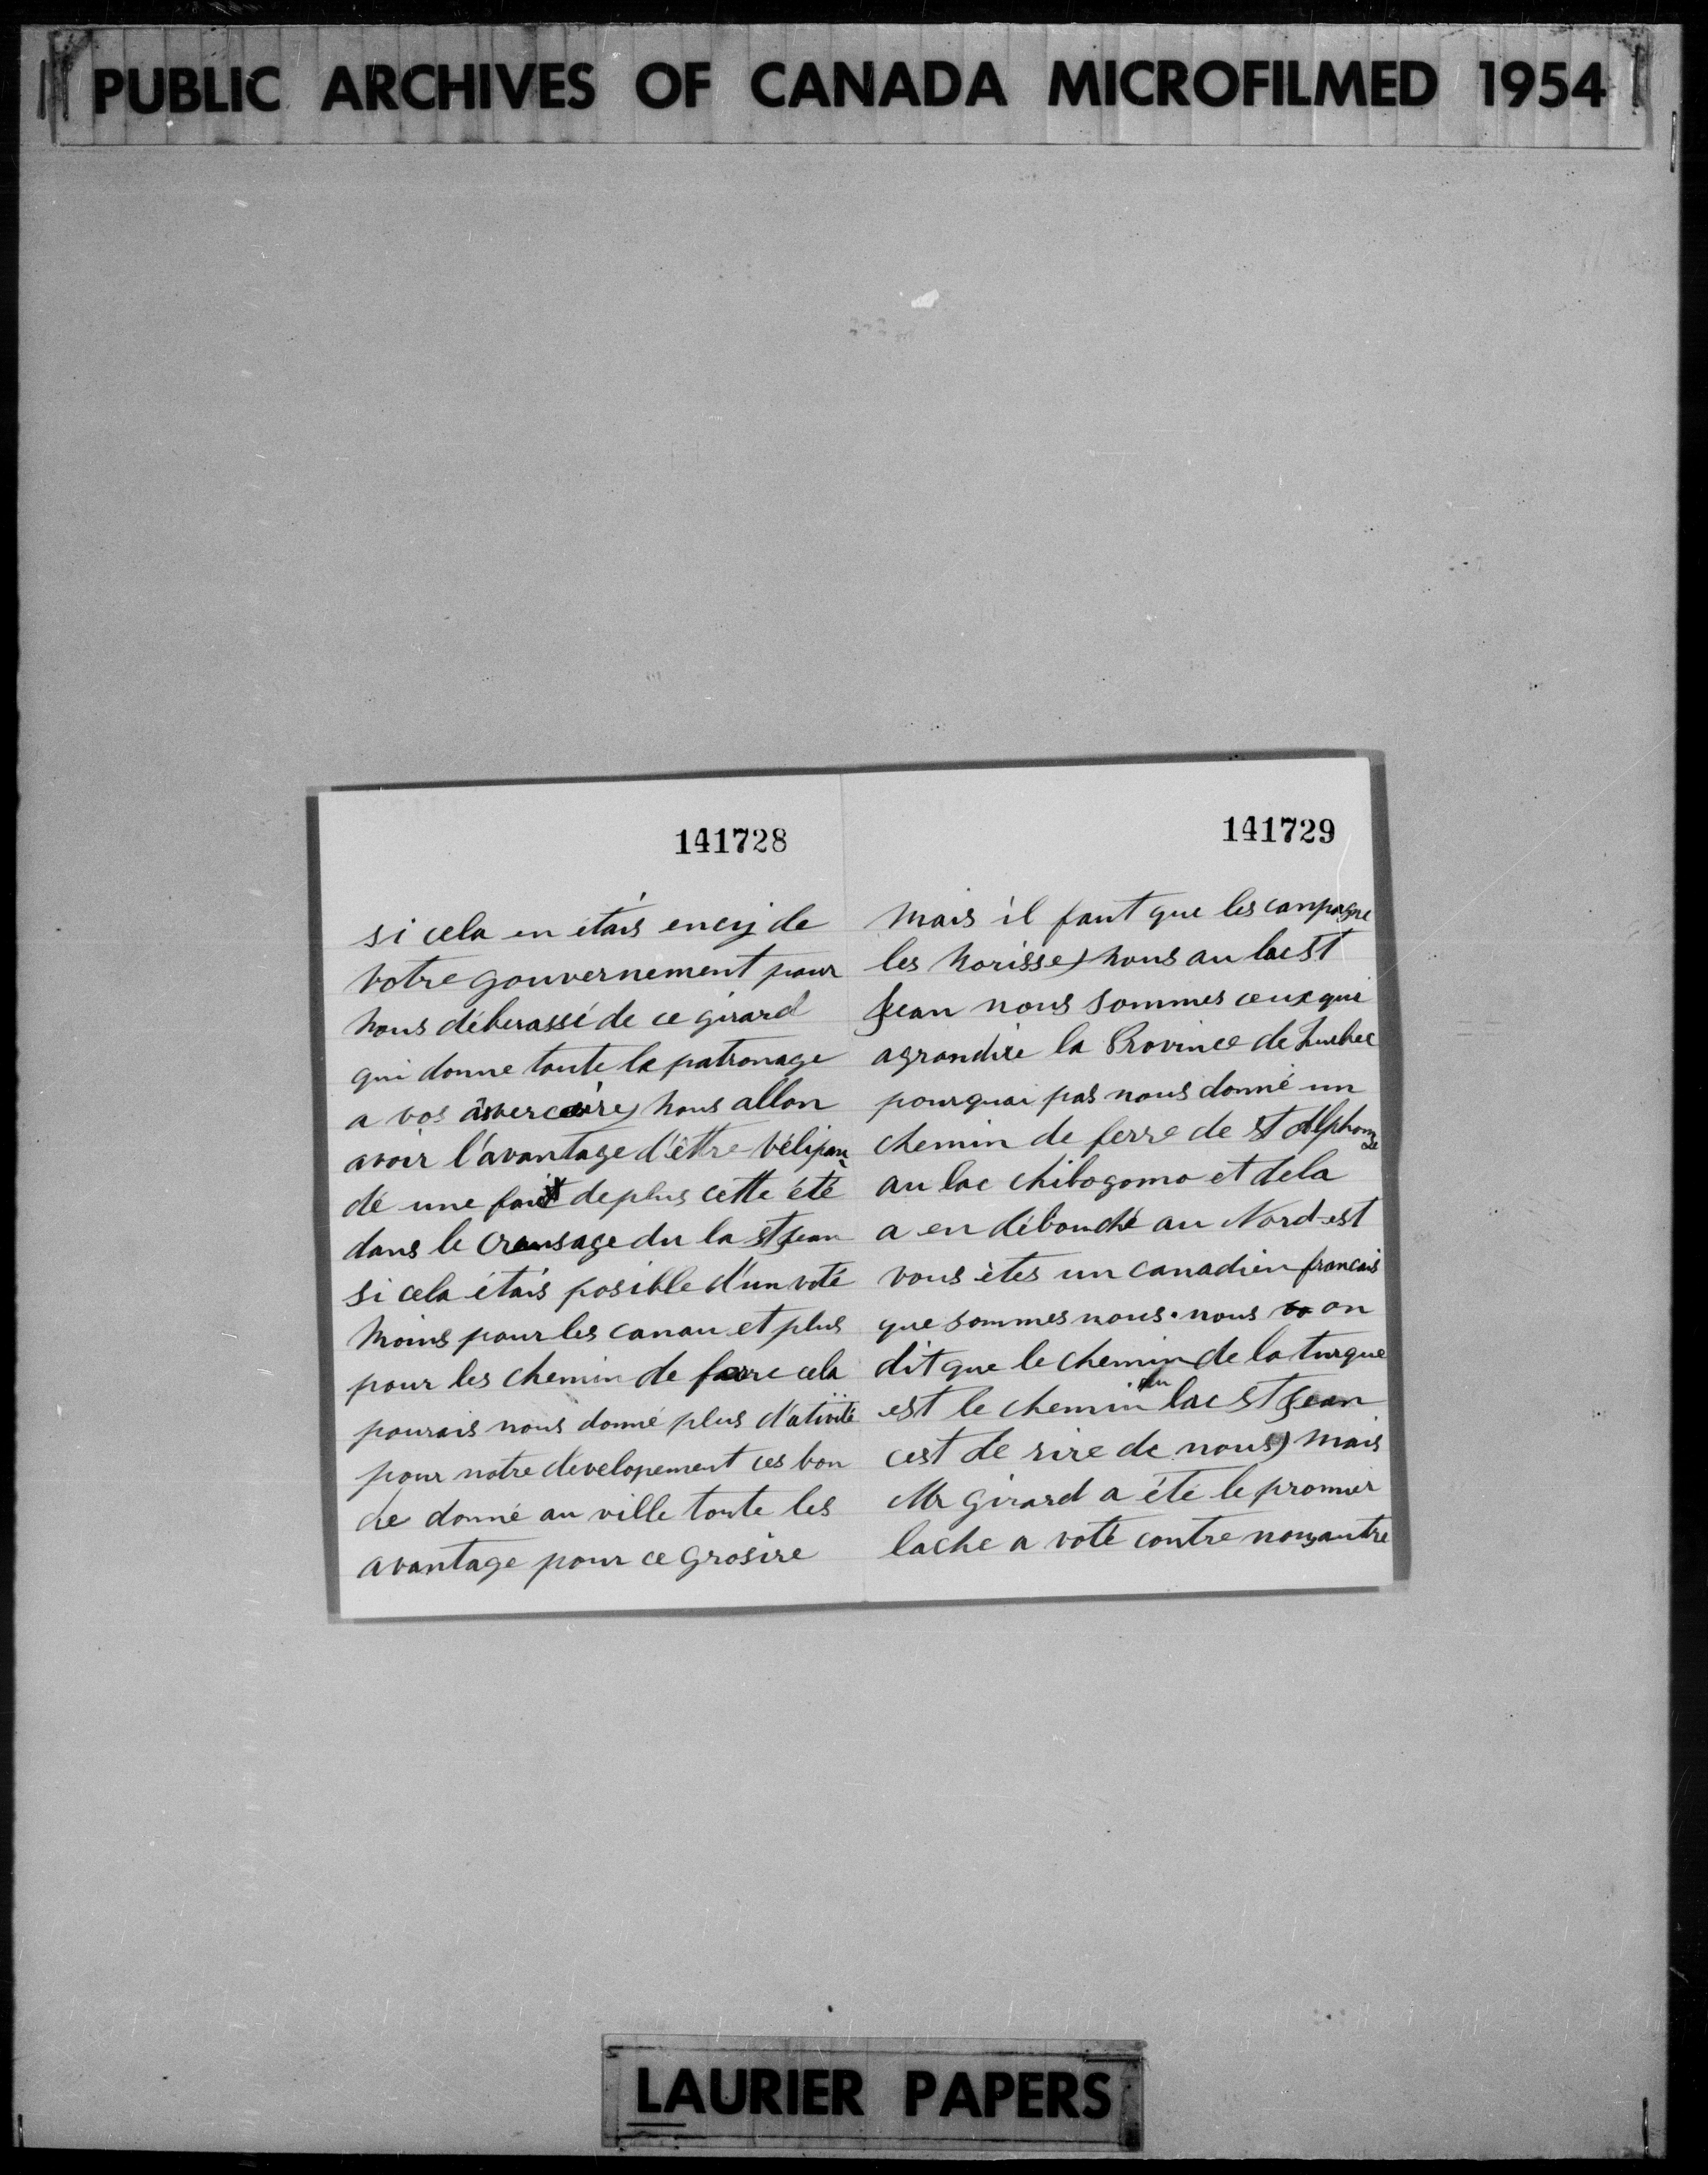 PUBLIC ARCHIVES OF CANADA MICROFILMED 1954
141728
si cela en étais encij de
votre gouvernement pour
nous déberassé de ce girard
qui donne toute le patronage
a vos nous allon
avoir l'avantage d'être vélipan
dé une fait de plus cette été
dans le creusage du la st Jean
si cela étais posible d'un voté
moins pour les canau et plus
pour les chemin de ferre cela
pourais nous donné plus d'ativité
pour notre developement ces bon
de donné au ville toute les
avantage pour ce grosire
141729
mais il faut que les canpagne
les norisse) nous au lac st
Jean nous sommes ceux qui
agrandire la Province de Quebec
pourquoi pas nous donné un
chemin de ferre de st Alphonse
au lac chibogomo et dela
a en débouché au Nord-est
vous êtes un canadien francais
que sommes nous. nous on
dit que le chemin de la turque
est le chemin du lac st Jean
cest de rire de nous) mais
Mr Girard a été le promier
lache a voté contre nous autre
LAURIER PAPERS